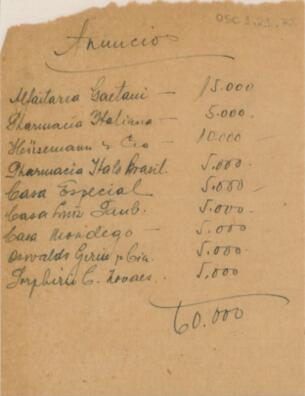 OSC 1.21.
Anuncios
Alfaitaria Gaetani — 15.000
Pharmacia Italiana — 5.000
Hüsemann & Cia — 10.000
Pharmacia Italo Brasil. 5.000
Casa Especial 5.000
Casa Taub. 5.000
Casa Mondego — 5.000
Osvaldo & Cia. 5.000
C. Novaes. 5.000
60.000